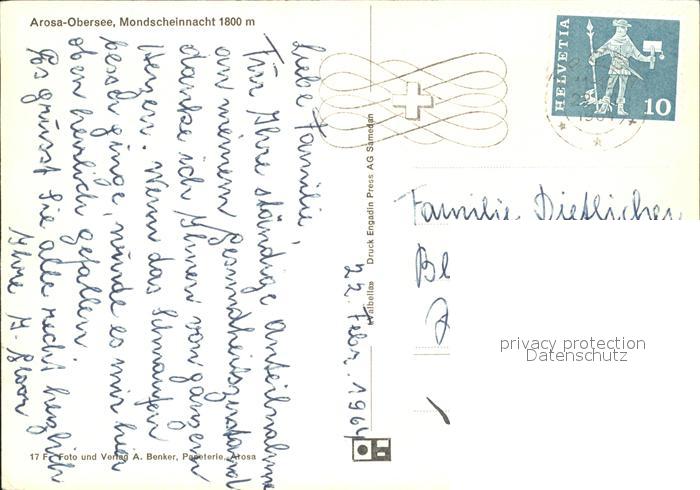 Arosa-Obersee, Mondscheinnacht 1800 m
22. Febr. 1964
Liebe Familie,
Für Ihre ständige Anteilnahme
an meinem Gesundheitszustand
danke ich Ihnen von ganzem
Herzen. Wenn das Schnaufen
besser ginge, würde es mir hier
oben herrlich gefallen.
Es grüsst Sie alle recht herzlich
Ihre
17 F. Foto und Verlag A. Benker, Papeterie, Arosa
«Valbella» Druck Engadin Press AG Samedan
HELVETIA
10
Familie
privacy protection
Datenschutz